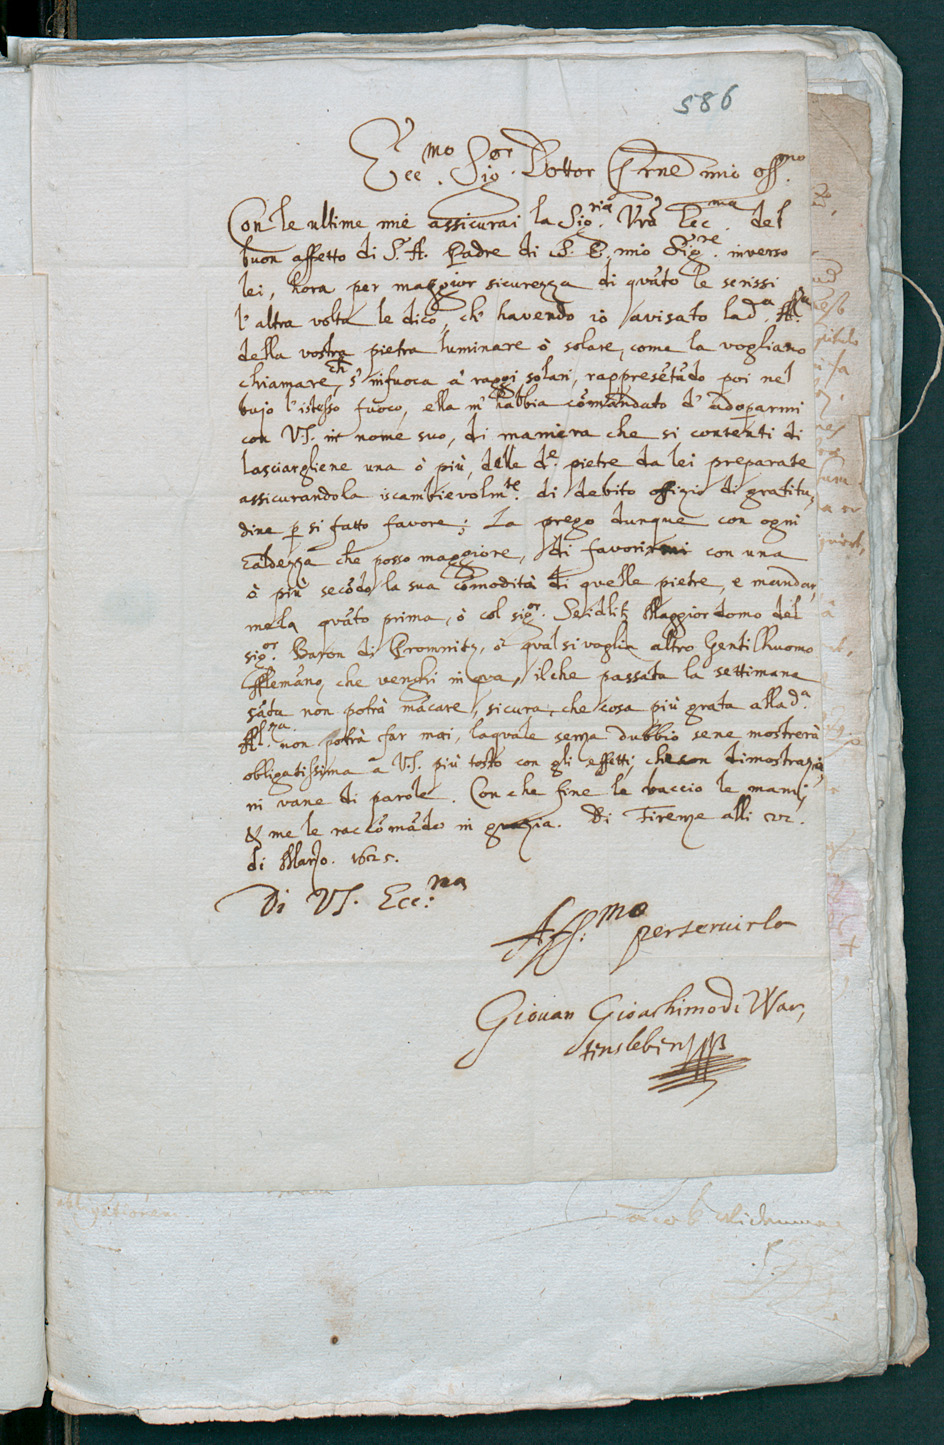 586
Ecc.mo Sig.or Dottor mio oss.mo
Con le ultime mie assicurai la Sig.ria Vrã Ecc.ma del
buon affetto di S. A. Padre di S. E. mio Sig.re inverso
lei, hora per maggior sicurezza di quãto le scrissi
l'altra volta le dico, ch' havendo io avisato la d.a A.za
della vostra pietra luminare ò solare, come la vogliano
chiamare, ch s' infuoca à raggi solari, rappresẽtãdo poi nel
bujo l'istesso fuoco, ella m' habbia cõmandato d' adoparmi
con V.S. in nome suo, di maniera che si contenti di
lasciargliene una ò più, delle d.e pietre da lei preparate
assicurandola iscambievolm.te di debito offizio di gratitu,
dine p si fatto favore; La prego dunque con ogni
caldezza che posso maggiore, di favorirmi con una
ò più secõdo la sua cõmodità di quelle pietre, e mandar,
mela quãto prima, ò col sig.or Seidlitz Maggiordomo del
sig.or Baron di Promnitz, ò qual si voglia altro Gentilhuomo
Allemãno, che venghi in qua, ilche passata la settimana
sãta non potrà mãcare, sicura, che cosa più grata alla d.a
A.za non potrà far mai, laquale senza dubbio se ne mostrerà
obligatissima à V.S. più tosto con gli effetti, che con dimostrazio,
ni vane di parole. Con che fine le baccio le mani,
& me le raccõmãdo in grazia. Di Firenze alli
di Marzo. 1625.
Di V.S. Ecc.ma
Aff.mo per servirla
Giovan Gioachimo di War,
tensleben